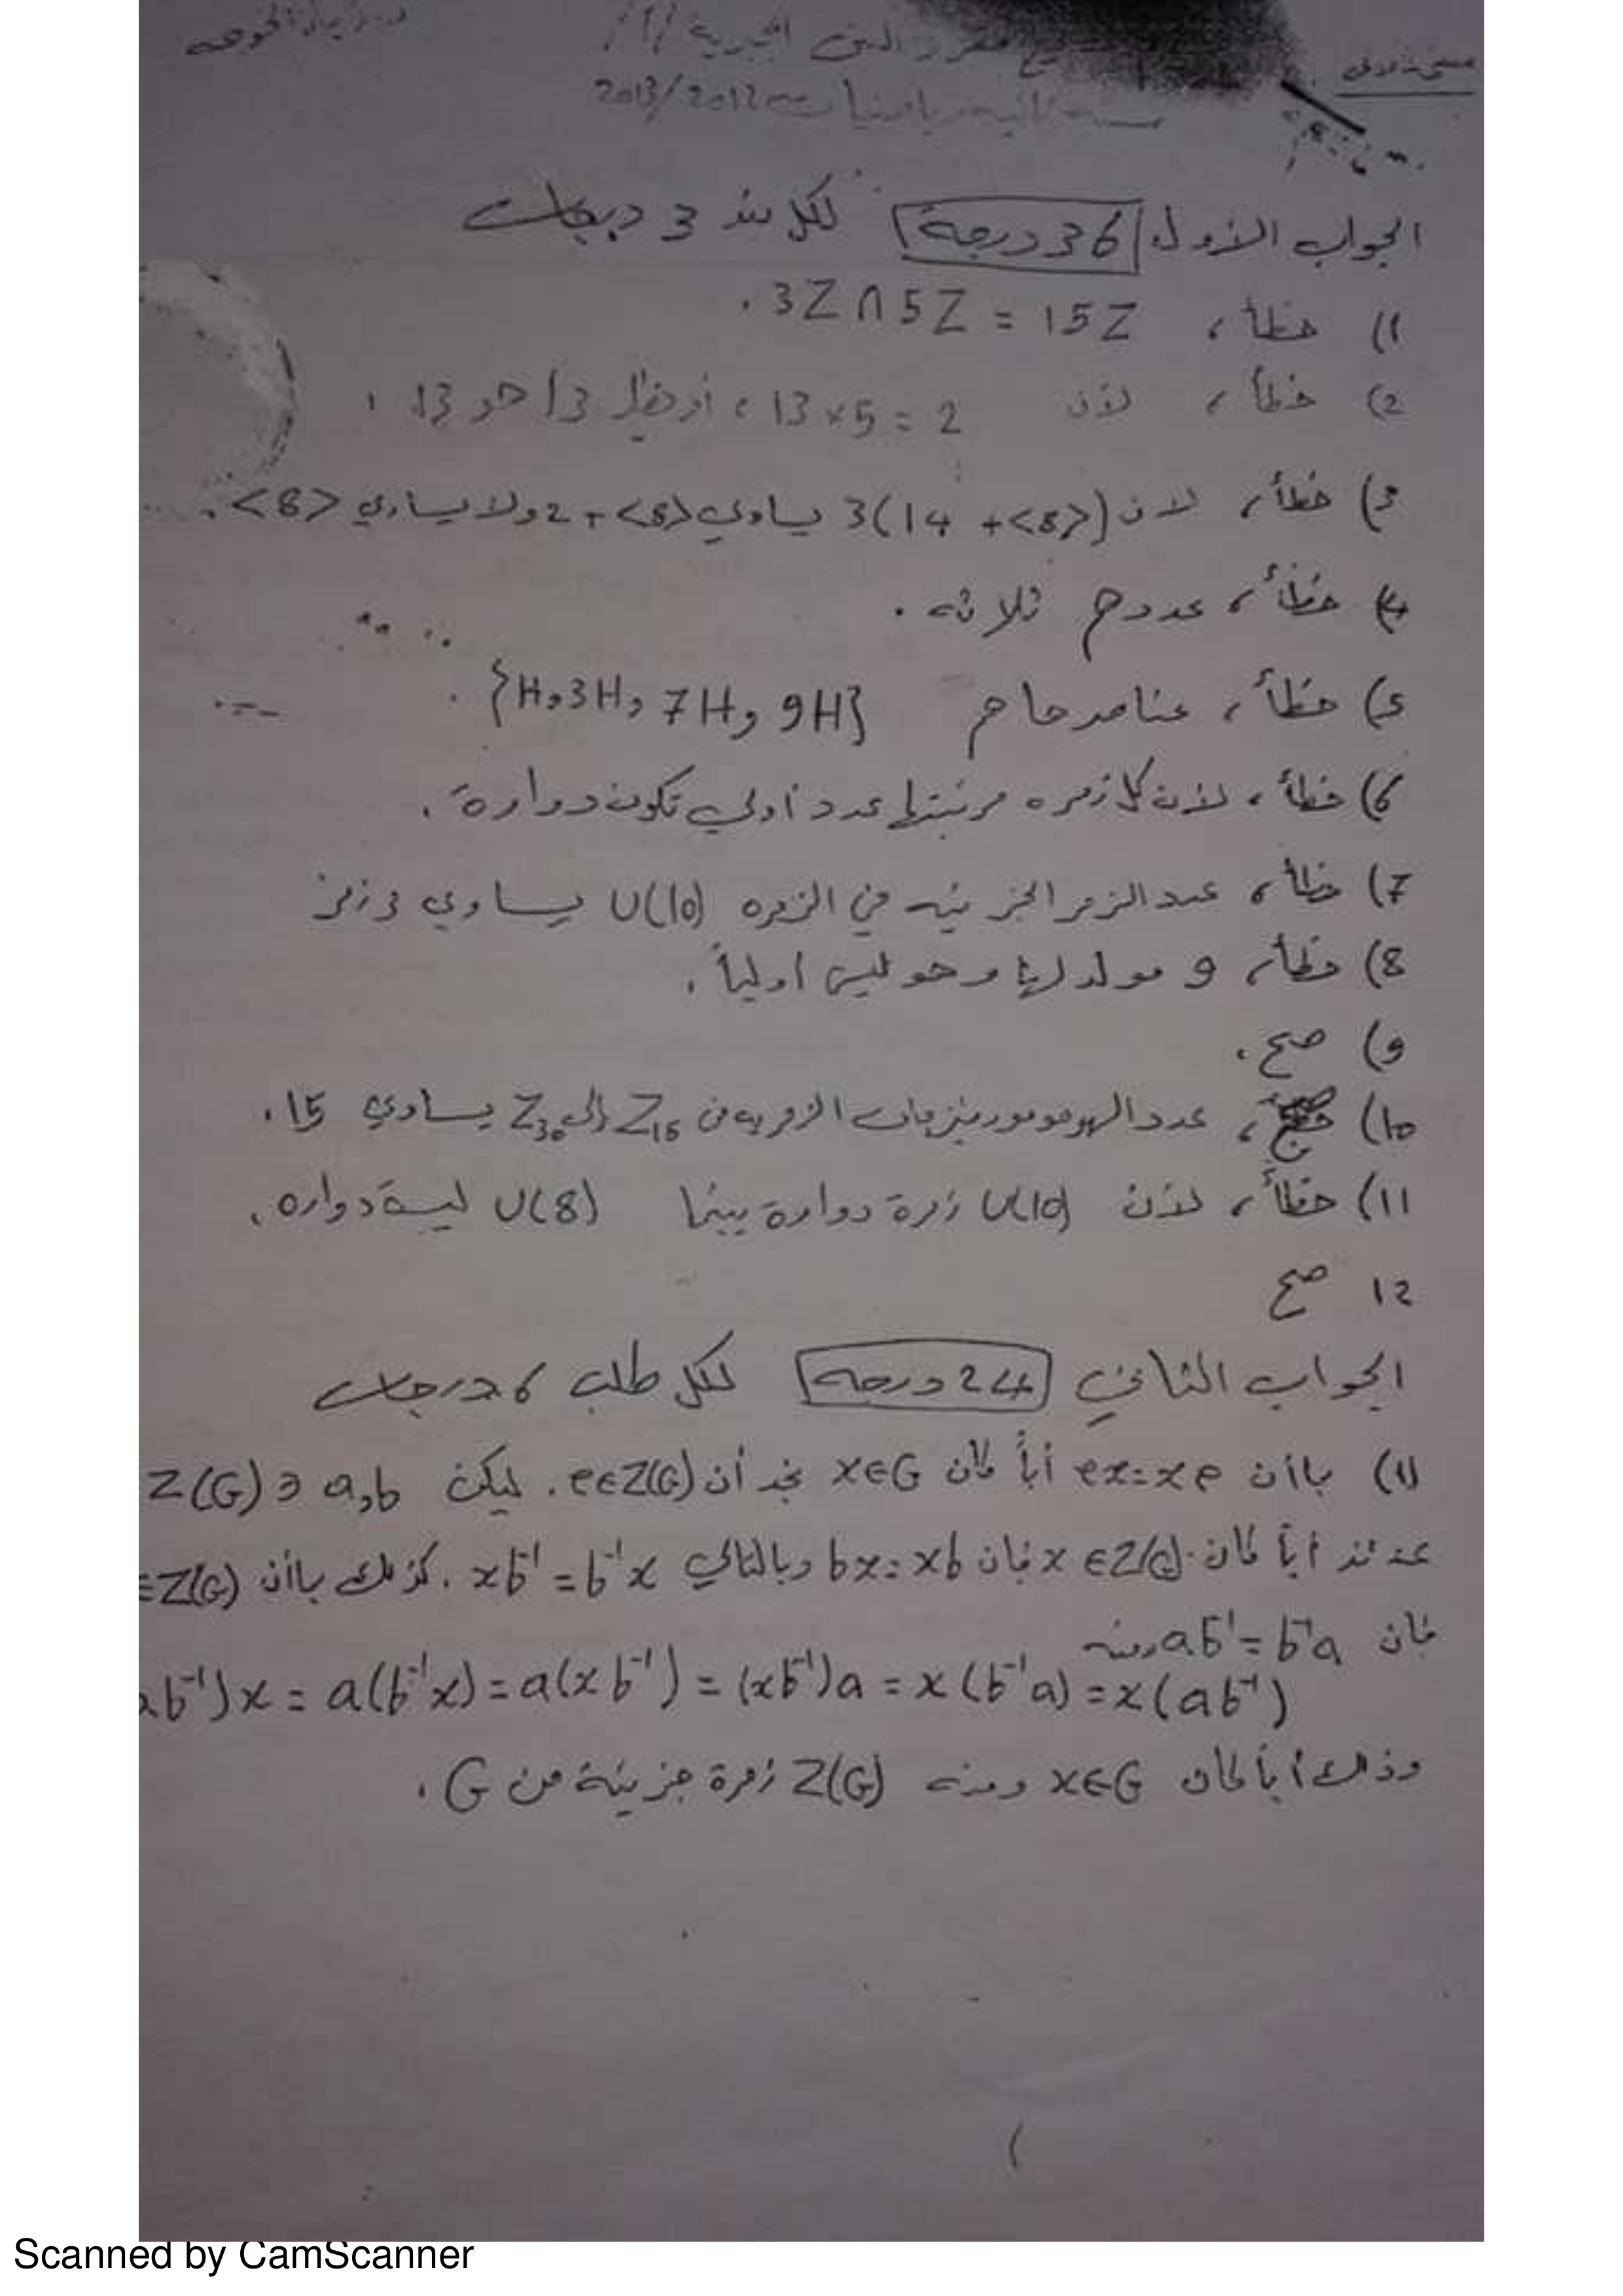 مقرر البنى الجبرية /1/
سنة ثانية رياضيات 2013/2012
الجواب الأول 36 درجة لكل بند 3 درجات
1) خطأ، 3Z∩5Z = 15Z.
2) خطأ، لأن 13×5=2، أو نظير 13 هو 13.
3) خطأ، لان 3(14+<8>) يساوي 2+<8> ولا يساوي <8>.
4) خطأ، عددهم ثلاثة.
5) خطأ، عناصرها هم {H,3H,7H,9H}.
6) خطأ، لأن كل زمرة مرتبتها عدد أولي تكون دوارة.
7) خطأ، عدد الزمر الجزئية في الزمرة U(10) يساوي 3 زمر
8) خطأ، 9 مولد لها وهو ليس أولياً.
9) صح.
10) صح، عدد الهومومورفيزمات الزمرية من Z15 إلى Z30 يساوي 15.
11) خطأ، لأن U(10) زمرة دوارة بينما U(8) ليسة دواره.
12 صح
الجواب الثاني 24 درجة لكل طلب 6 درجات
1) بما أن ex=xe أياً كان x∈G نجد أن e∈Z(G). ليكن a,b ∈ Z(G)
عندئذ أياً كان x∈Z(G) فان bx=xb وبالتالي xb⁻¹=b⁻¹x. كذلك بما أن ∈Z(G)
فان ab⁻¹=b⁻¹a ومنه
ab⁻¹)x = a(b⁻¹x) = a(xb⁻¹) = (xb⁻¹)a = x(b⁻¹a) = x(ab⁻¹)
وذلك أياً كان x∈G ومنه Z(G) زمرة جزئية من G.
Scanned by CamScanner